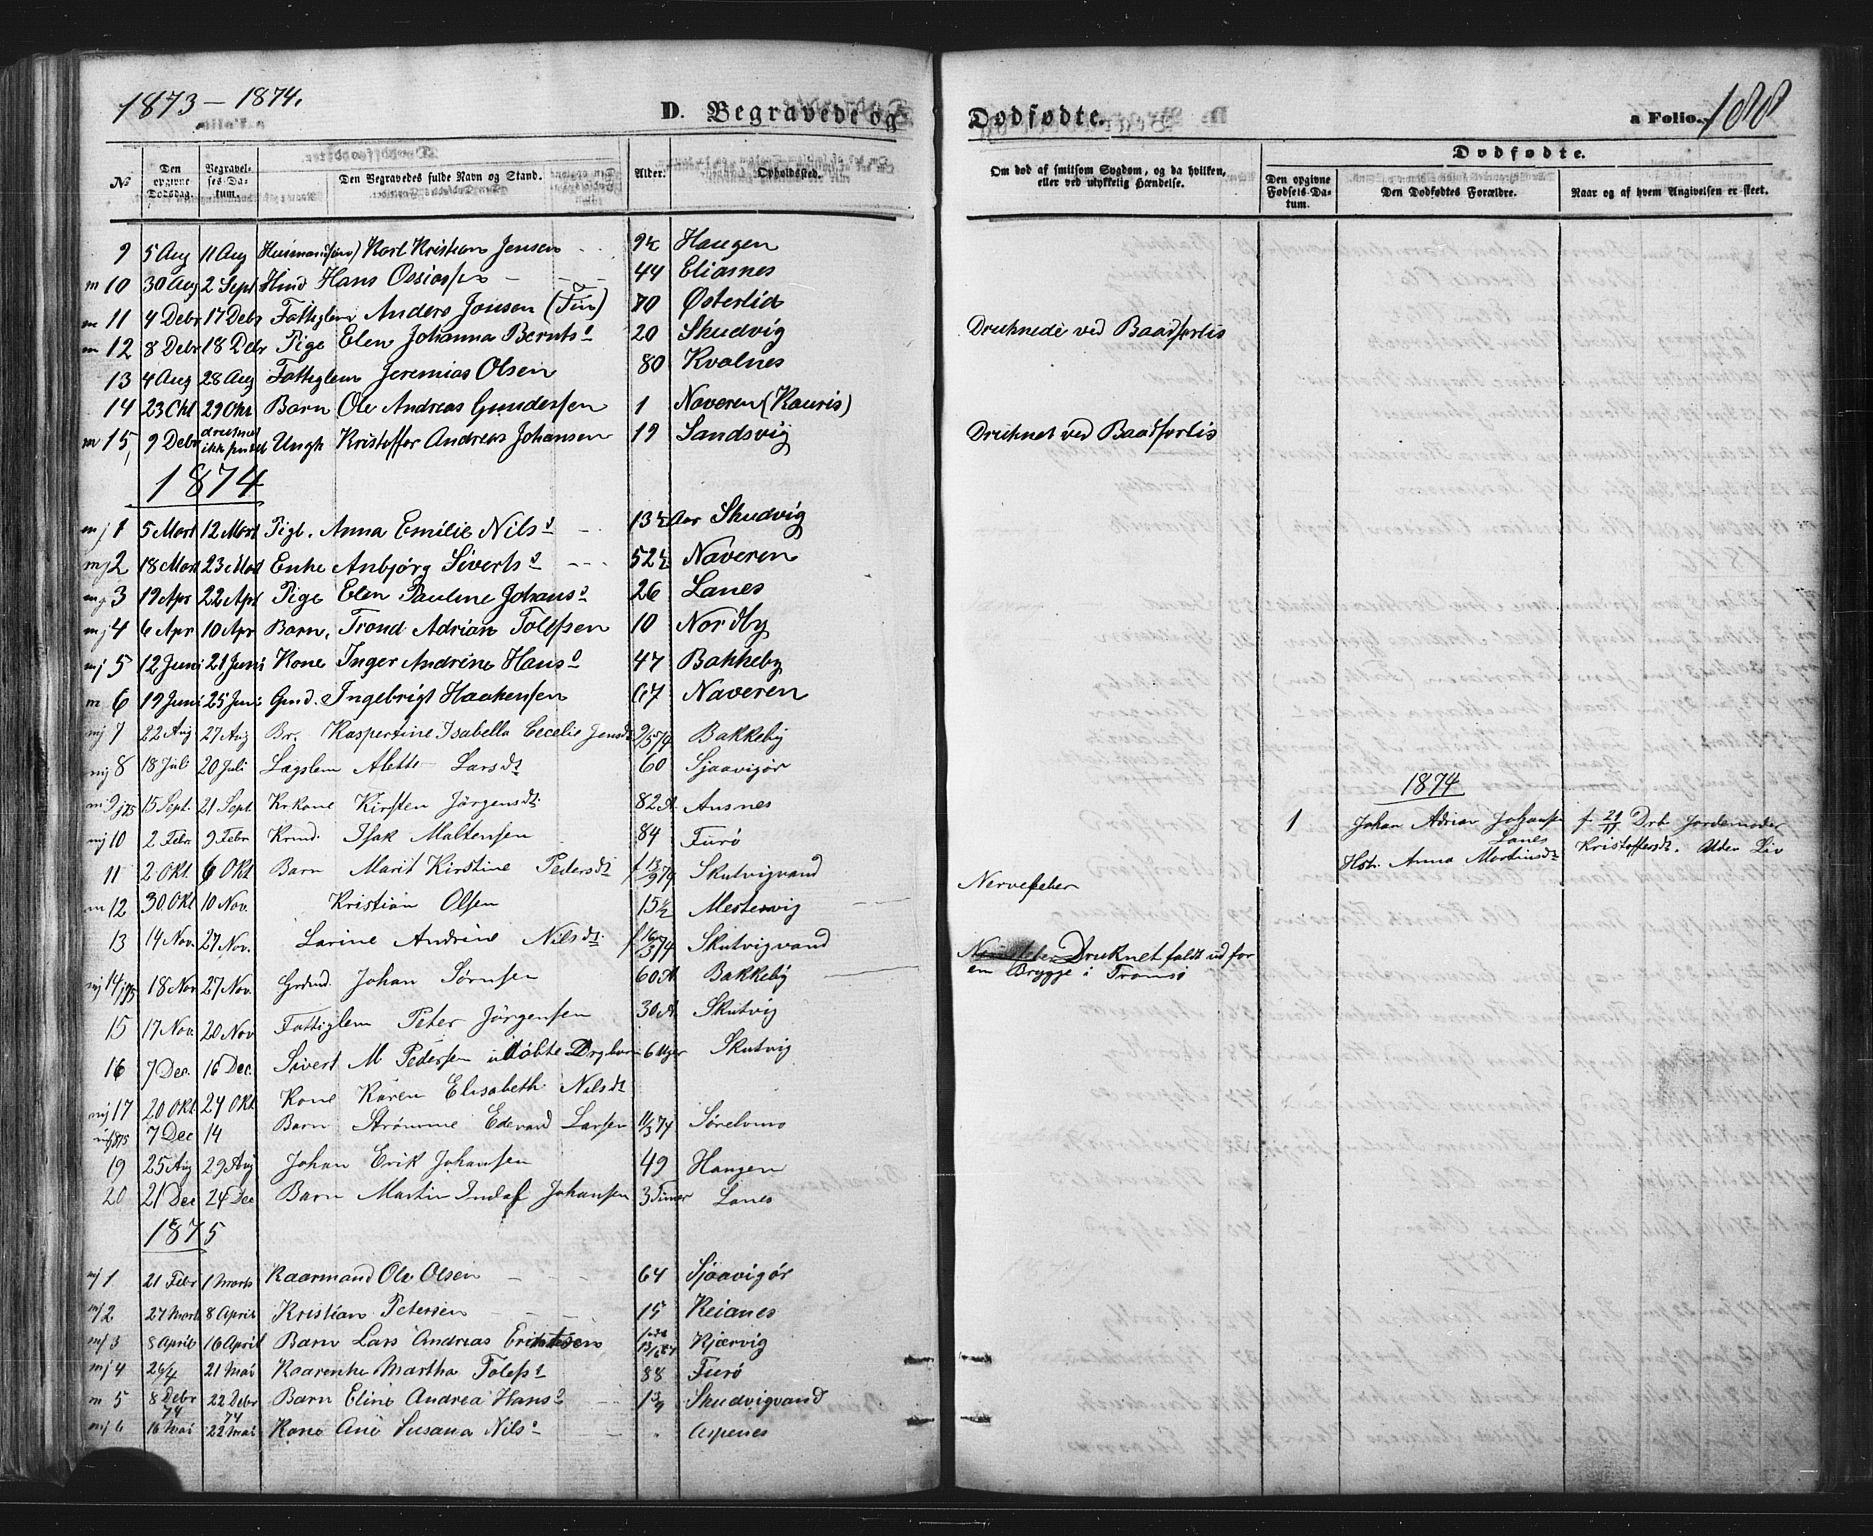 1873 - 1874.
D. Begravede og Dødfødte.
a Folio. 188
No
Den opgivne Dødsdag.
Begravelses-Datum.
Den Begravedes fulde Navn og Stand.
Alder.
Opholdssted.
Om død af smitsom Sygdom, og da hvilken, eller ved ulykkelig Hændelse.
Dødfødte.
Den opgivne Fødsels-Datum.
Den Dødfødtes Forældre.
Naar og af hvem Angivelsen er skeet.
9 5 Aug 11 Aug Karl Kristian Jensen Haugen
m 10 30 Aug 2 Sept Hans Ossiassen 44 Eliasnes
m 11 4 Debr 17 Debr Fattiglem Anders Jonsen (Fin) 70 Østerlid
m 12 8 Debr 18 Debr Pige Elen Johanna Bernts 20 Skudvig Druknede ved Baadforlis
13 4 Aug 28 Aug Fattiglem Jeremias Olsen 80 Kvalnes
14 23 Okt 29 Okt Barn Ole Andreas Gundersen 1 Naveren (Kauris)
m 15 9 Debr druknet ikke Ungk Kristoffer Andreas Johansen 19 Sandsvig Druknet ved Baadforlis
1874
mj 1 5 Mart 12 Mart Pigb. Anna Emilie Nilsd 13½ Aar Skudvig
mj 2 18 Mart 23 Mart Enke Anbjørg Siverts 52½ Naveren
mj 3 19 Apr 22 Apr Pige Elen Pauline Johans 26 Lanes
mj 4 6 Apr 10 Apr Barn, Trond Adrian Tolefsen 10 Nordby
mj 5 12 Juni 21 Juni Kone Inger Andrine Hans 47 Bakkeby
m 6 19 Juni 25 Juni Gmd. Ingebrigt Haakensen 67 Naveren
mj 7 22 Aug 27 Aug Br. Kaspertine Isabella Cecelie Jensdt 9/5 74 Bakkeby
mj 8 18 Juli 20 Juli Lægslem Alette Larsdt 60 Sjaavigør
m 9/175 15 Sept. 21 Sept. Kone Kirsten Jørgensdt. 82 A Ansnes
mj 10 2 Febr 9 Febr Isak Maltensen 84 Furø
11 2 Okt. 6 Okt Barn Marit Kirstine Pedersdt f 13/9 74 Skutvigvand
m 12 30. Okt 10 Nov. Kristian Olsen 15½ Mestervig Nervefeber
13 14 Nov. 27 Nov. Larine Andrine Nilsdt. Skutvigvand
mj 14/175 18 Nov 27 Nov. Johan Sørnsen 60 A Bakkeby Druknet faldt ud for
en Brygge i Tromsø
15 17 Nov. 20 Nov Fattiglem Peter Jørgensen 30 A Skutvig
16 7 Dec. 16 Dec. Sivert M Pedersen udøbte 6 Uger Skutvig
mj 17 20 Okt 24 Okt Kone Karen Elisabeth Nilsdt
7 Dec 14 Barn Strømme Edevard Larsen 11/3 74 Sørelvnes
19 25 Aug 29 Aug Johan Erik Johansen 49 Haugen
20 21 Dec 24 Dec Barn Martin Johansen 3 Timer Lanes
1874
1 Johan Adrian Johansen
Lanes
Hst. Anna Martinsdt
f. 21/11 Drb Jordemoder
Kristoffersdt. Uden Liv
1875
mj 1 21 Febr 1 Marts Kaarmand Ole Olsen 64 Sjaavigør
mj 2 27 Mart 8 April Kristian Petersen 15 Reianes
mj 3 8 April 16 April Barn Lars Andreas Kjærvig
mj 4 26/4 21 Mai Kaarenke Martha Tolefs 88 Furø
m 5 8 Debr 74 22 Debr 74 Barn Eline Andrea Hans Skudvigvand
mj 6 16 Mai 22 Mai Kone Ane Susana Nils Aspenes